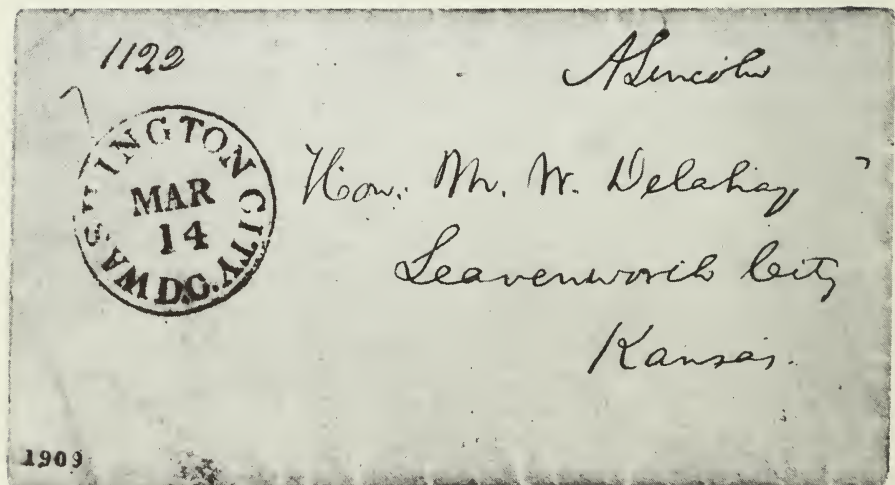 1122
A Lincoln
WASHINGTON CITY. D.C.
MAR
14
Hon. M. W. Delahay
Leavenworth City
Kansas.
1909